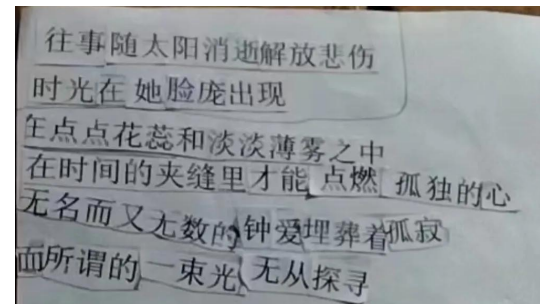 往事随太阳消逝解放悲伤
时光在她脸庞出现
在点点花蕊和淡淡薄雾之中
在时间的夹缝里才能点燃孤独的心
无名而又无数的钟爱埋葬着孤寂
而所谓的一束光无从探寻